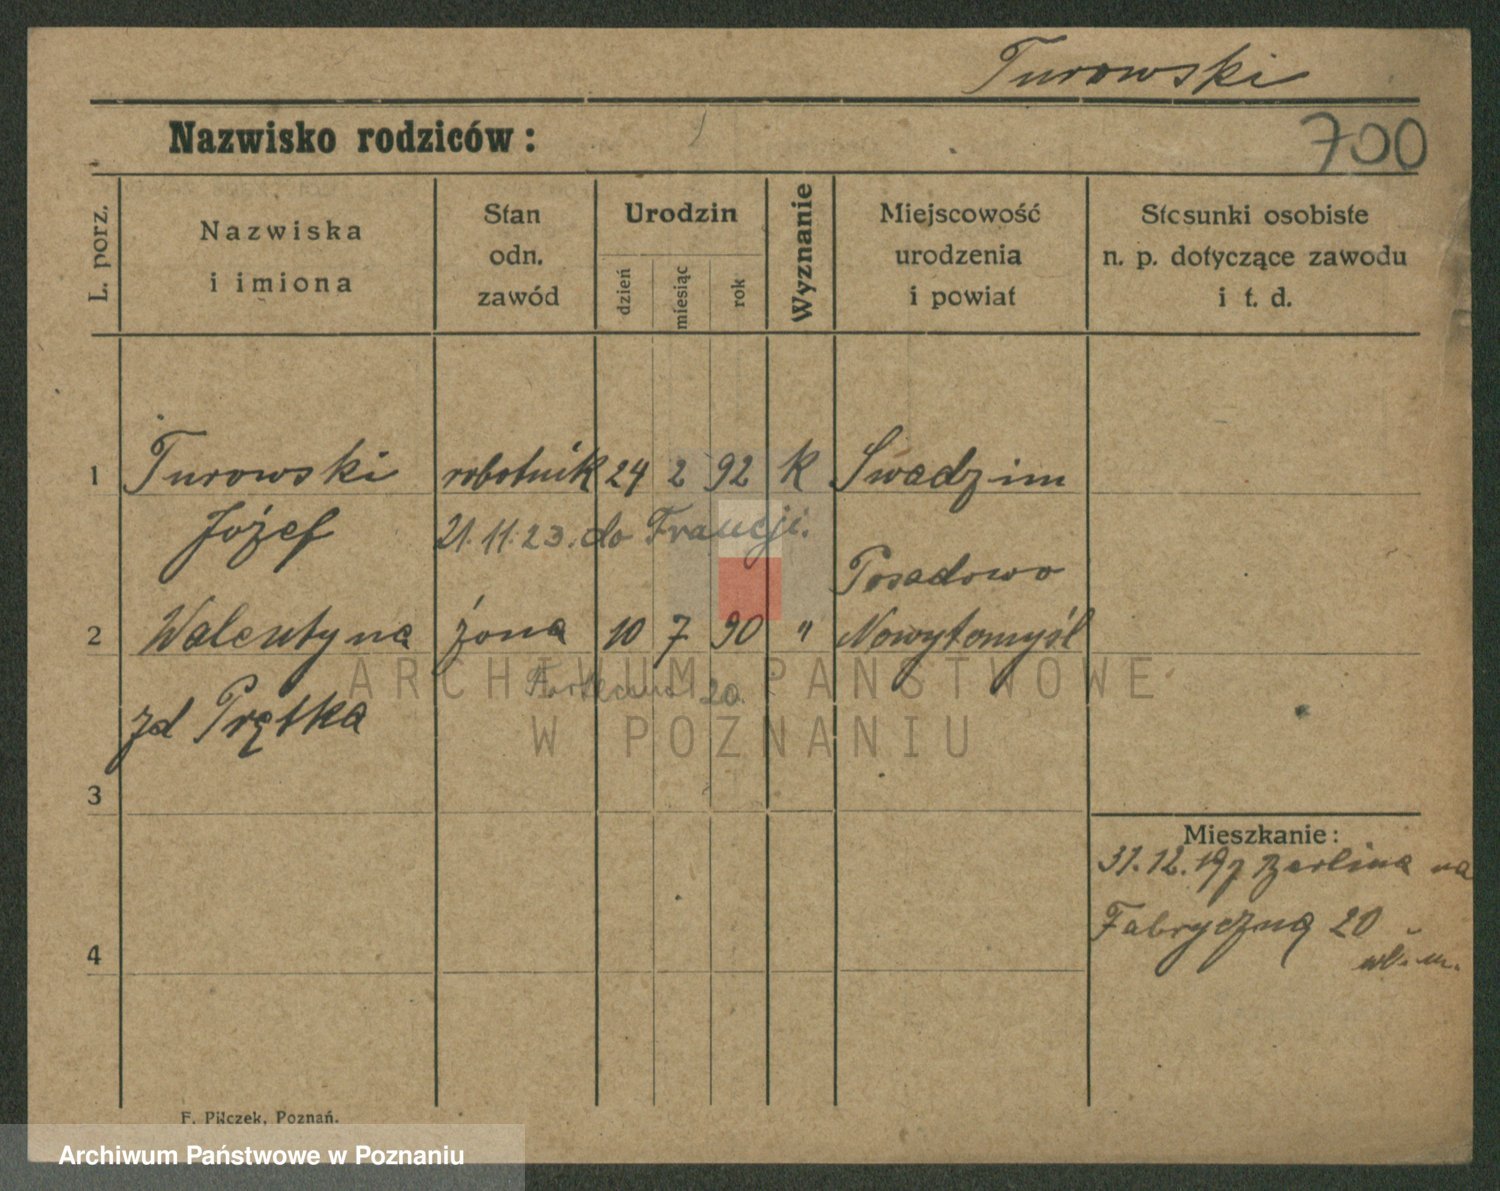 Turowski
Nazwisko rodziców:
700
L. porz.
Nazwiska
i imiona
Stan
odn.
zawód
Urodzin
dzień
miesiąc
rok
Wyznanie
Miejscowość
urodzenia
i powiat
Stosunki osobiste
n. p. dotyczące zawodu
i t. d.
1 Turowski robotnik 24 2 92 k Swadzim
Józef 21.11.23. do Francji.
Posadowo
2 Walentyna żona 10 7 90 " Nowytomyśl
20
zd Prętka
ARCHIWUM PAŃSTWOWE
W POZNANIU
3
Mieszkanie:
31.12.19 z Berlina na
Fabryczną 20
4
F. Pilczek, Poznań.
Archiwum Państwowe w Poznaniu